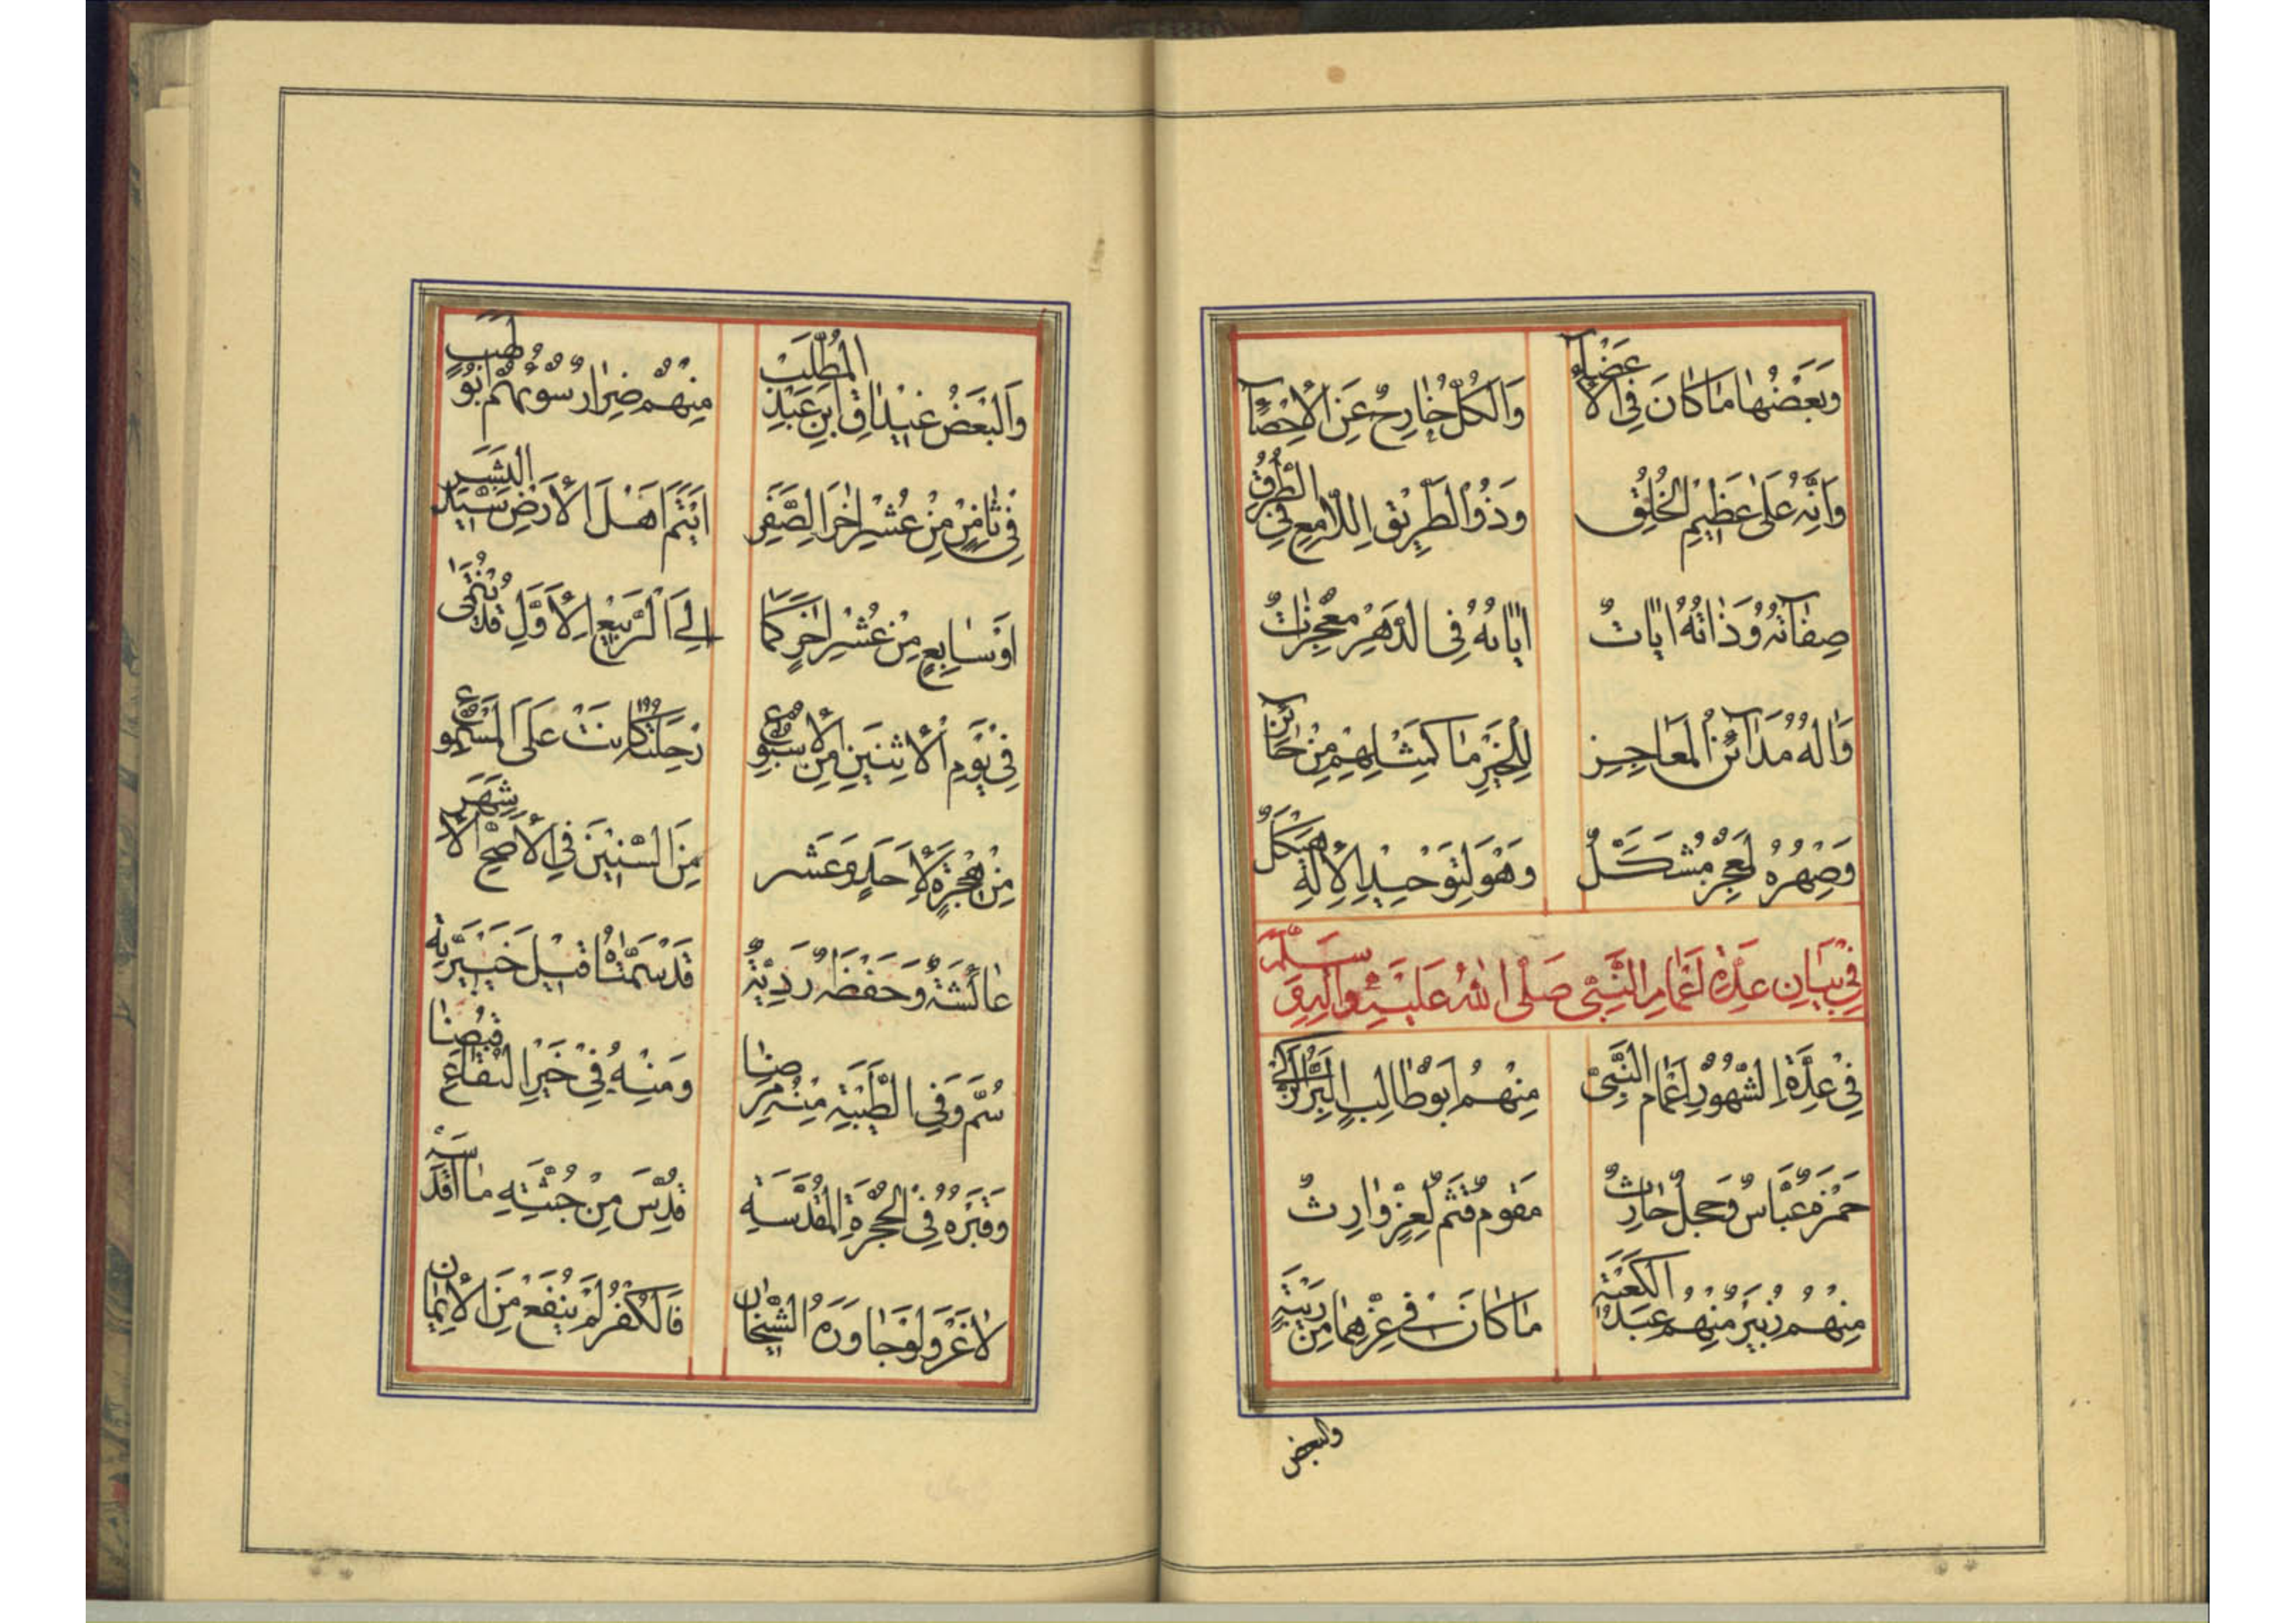 وَبَعْضُهَا مَا كَانَ فِی الْاَعْضَآءِ وَالْكُلُّ خَارِجٌ عَنِ الْاِحْصَآءِ
وَاَنَّهُ عَلٰی عَظِیْمِ الْخُلُقِ وَذُو الطَّرِیْقِ اللَّامِعِ فِی الطُّرُقِ
صِفَاتُهُ وَذَاتُهُ اٰیَاتٌ اٰیَاتُهُ فِی الدَّهْرِ مُعْجِزَاتٌ
وَاٰلُهُ مَدَائِنُ الْمَعَاجِزِ لِلْخَیْرِ مَا كَمِثْلِهِمْ مِنْ حَائِزِ
وَصِهْرُهُ مُشَكَّلٌ وَهُوَ لِتَوْحِیْدِ الْاِلٰهِ هَیْكَلٌ
فِی بَیَانِ عِدَّةِ اَعْمَامِ النَّبِیِّ صَلَّی اللهُ عَلَیْهِ وَاٰلِهِ وَسَلَّمَ
فِی عِدَّةِ الشُّهُوْرِ اَعْمَامُ النَّبِیِّ مِنْهُمْ اَبُوْطَالِبٍ الْبَرُّ
حَمْزَةُ عَبَّاسٌ وَحَجْلٌ حَارِثٌ مُقَوَّمٌ قُثَمُ لِعِزٍّ وَارِثٌ
مِنْهُمْ زُبَیْرٌ مِنْهُمْ عَبْدُ الْكَعْبَةِ مَا كَانَ فِی عِزِّهِمَا مِنْ رَیْبَةٍ
والبعض
وَالْبَعْضُ غَیْدَاقِ ابْنِ عَبْدِ الْمُطَّلِبْ مِنْهُمْ ضِرَارُ سَوُّهُمْ اَبُوْ لَهَبٍ
فِی ثَامِنٍ مِنْ عُشْرِ اٰخِرِ الصَّفَرِ اَیْتَمَ اَهْلَ الْاَرْضِ سَیِّدُ الْبَشَرِ
اَوْ سَابِعٍ مِنْ عُشْرٍ اٰخِرٍ كَمَا اِلَی الرَّبِیْعِ الْاَوَّلِ قَدْ نُتِمٰی
فِی یَوْمِ الْاِثْنَیْنِ مِنَ الْاُسْبُوْعِ رِحْلَتُهُ كَانَتْ عَلَی الْمَسْمُوْعِ
مِنْ هِجْرَةٍ لِاَحَدَ وَعَشَرَ مِنَ السِّنِیْنَ فِی الْاَصَحِّ الْاَشْهَرِ
عَائِشَةُ وَحَفْصَةُ رَدِیَّةٌ قَدْ سَمَّتَاهُ قَبْلَ خَیْبَرِیَّةٍ
سُمَّ وَفِی الطَّیْبَةِ مِنْهُ مَرِضَا وَمِنْهُ فِی خَیْرِ الْبِقَاعِ قُبِضَا
وَقَبْرُهُ فِی الْحُجْرَةِ الْمُقَدَّسَةِ قُدِّسَ مِنْ جُثَّتِهِ مَا اَقْدَسَهْ
لَا غَرْوَ لَوْ جَاوَرَهُ الشَّیْخَانِ فَالْكُفْرُ لَمْ یَنْفَعْ مِنَ الْاِیْمَانِ